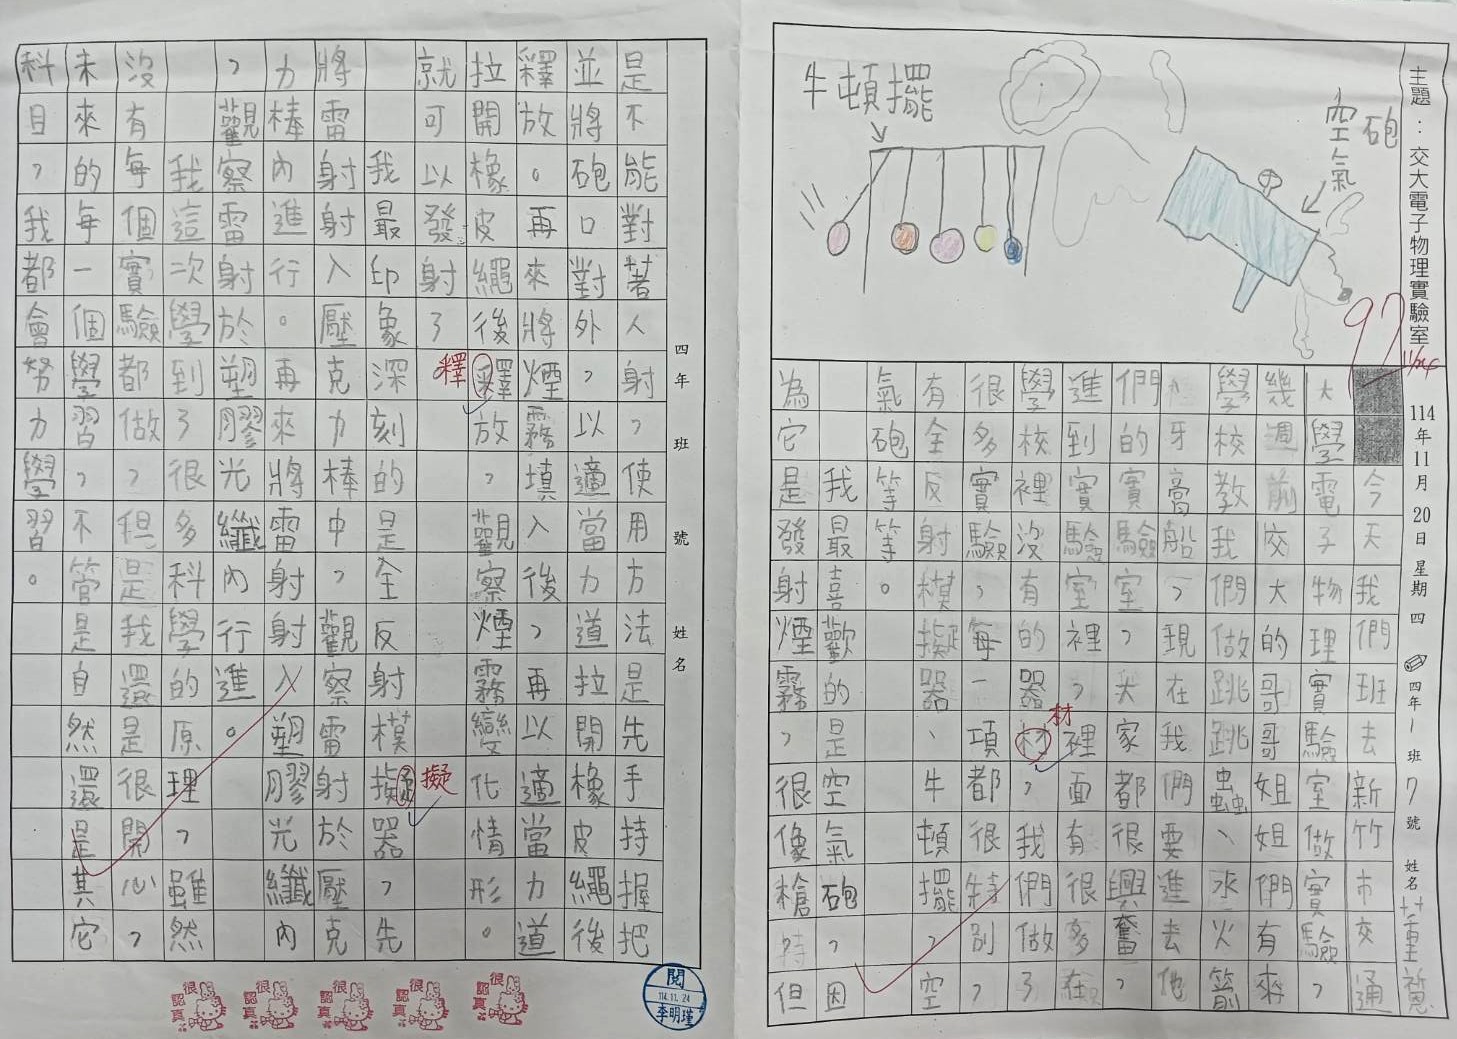 主題：交大電子物理實驗室
牛頓擺
空氣砲
97
11/24
114年11月20日 星期 四 四年1班7號 姓名
今天我們班去新竹市交通
大學電子物理實驗室做實驗，
幾週前交大的哥哥姐姐們有來
學校教我們做跳跳蟲、水火箭
、牙膏船，現在我們要進去他
們的實驗室，大家都很興奮，
進到實驗室裡，裡面有很多在
學校沒有的器材，我們做了
材
很多實驗，每一項都很特別，
有全反射模擬器、牛頓擺，空
氣砲等等。
我最喜歡的是空氣砲，因
為它是發射煙霧，很像槍 但
四年 班 號 姓名
是不能對著人射，使用方法是先手持握把
並將砲口對外，以適當力道拉開橡皮繩後
釋放。再來將煙霧填入後，再以適當力道
拉開橡皮繩後釋放，觀察煙霧變化情形。
釋
就可以發射了
我最印象深刻的是全反射模擬器，先
擬
將雷射射入壓克力棒中，觀察雷射於壓克
力棒內進行。再來將雷射射入塑膠光纖內
，觀察雷射於塑膠光纖內行進。
我這次學到了很多科學的原理，雖然
沒有每個實驗都做，但是我還是很開心，
未來的每一個學習，不管是自然還是其它
科目，我都會努力學習。
很認真
很認真
很認真
很認真
很認真
閱
114.11.24
李明瑾